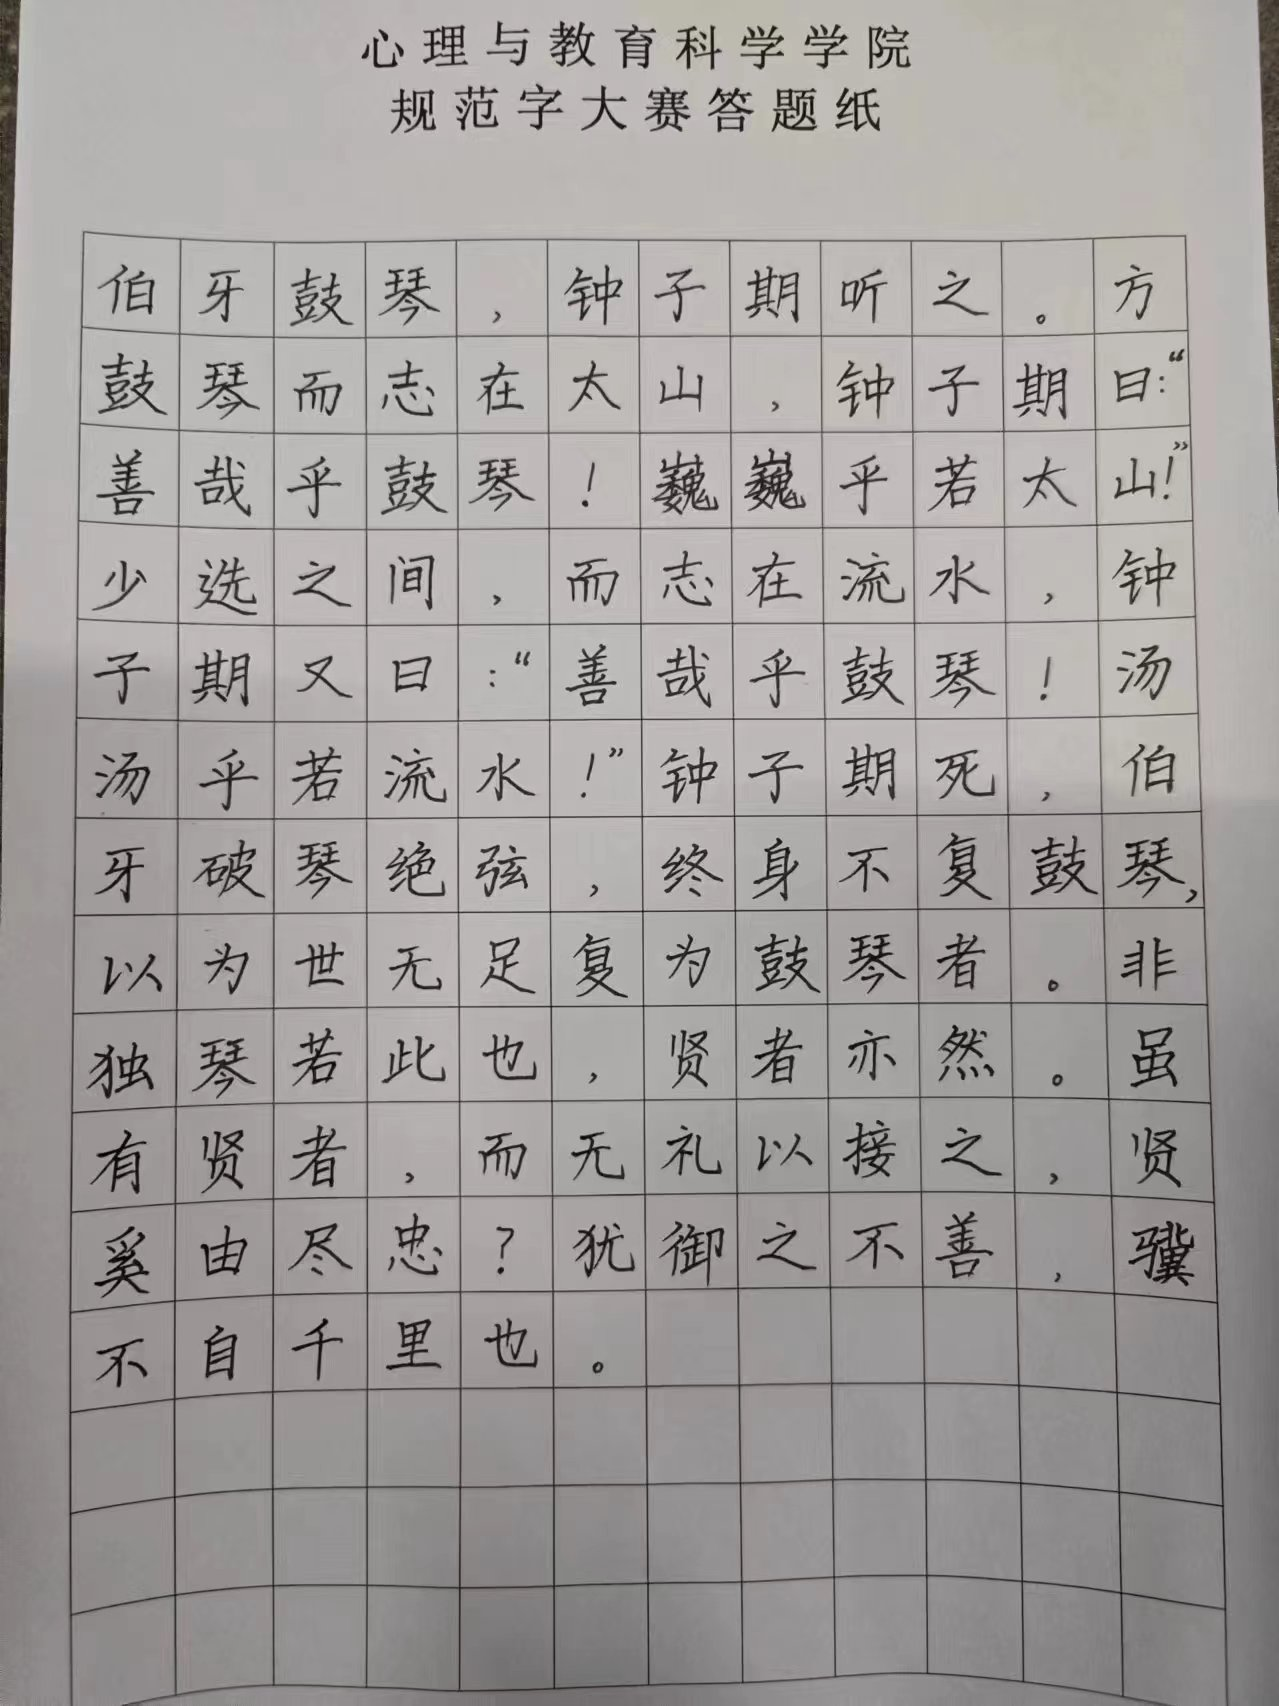 心理与教育科学学院
规范字大赛答题纸
伯牙鼓琴，钟子期听之。方
鼓琴而志在太山，钟子期曰：“
善哉乎鼓琴！巍巍乎若太山！”
少选之间，而志在流水，钟
子期又曰：“善哉乎鼓琴！汤
汤乎若流水！”钟子期死，伯
牙破琴绝弦，终身不复鼓琴，
以为世无足复为鼓琴者。非
独琴若此也，贤者亦然。虽
有贤者，而无礼以接之，贤
奚由尽忠？犹御之不善，骥
不自千里也。